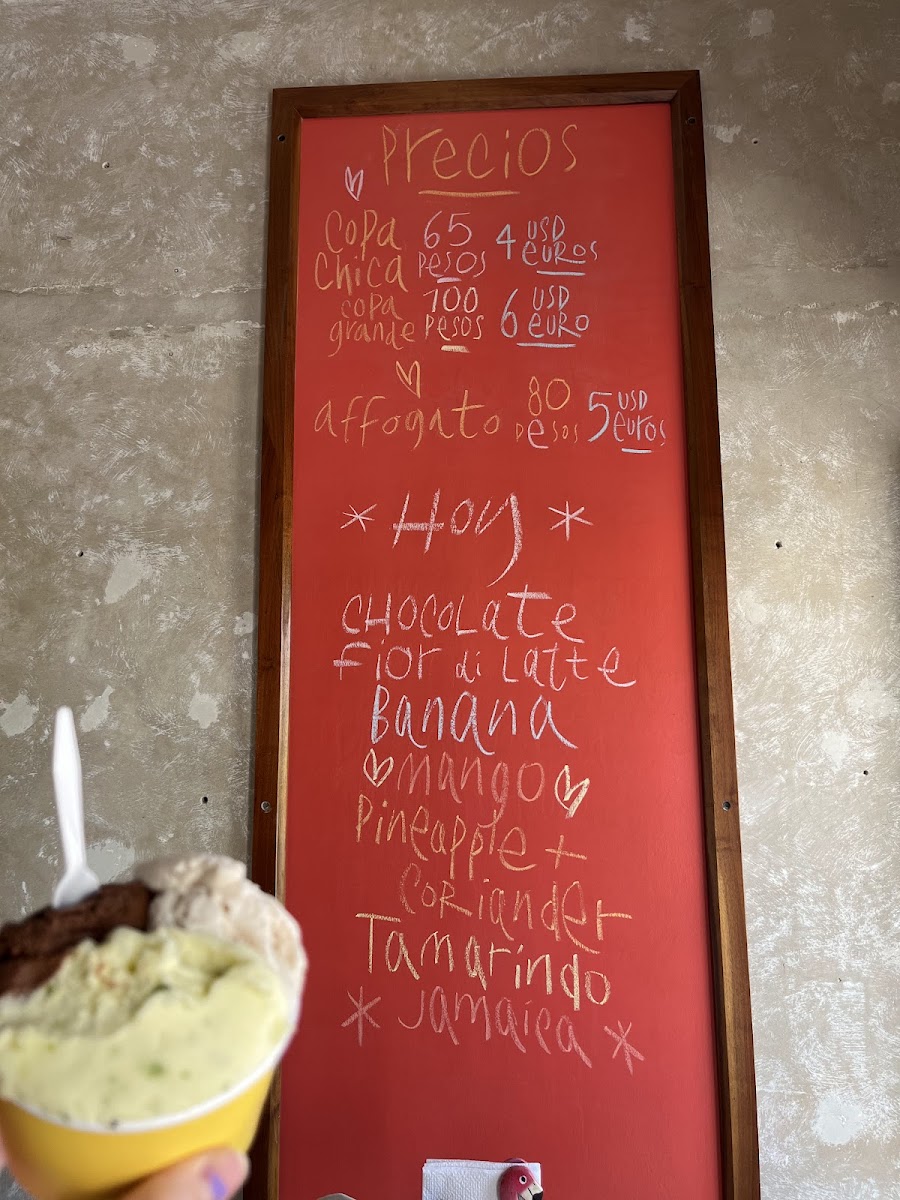 Precios
Copa Chica 65 pesos 4 USD euros
copa grande 100 pesos 6 USD euro
affogato 80 pesos 5 USD euros
* Hoy *
CHOCOLATE
Fior di Latte
Banana
mango
Pineapple +
Coriander
Tamarindo
* Jamaica *